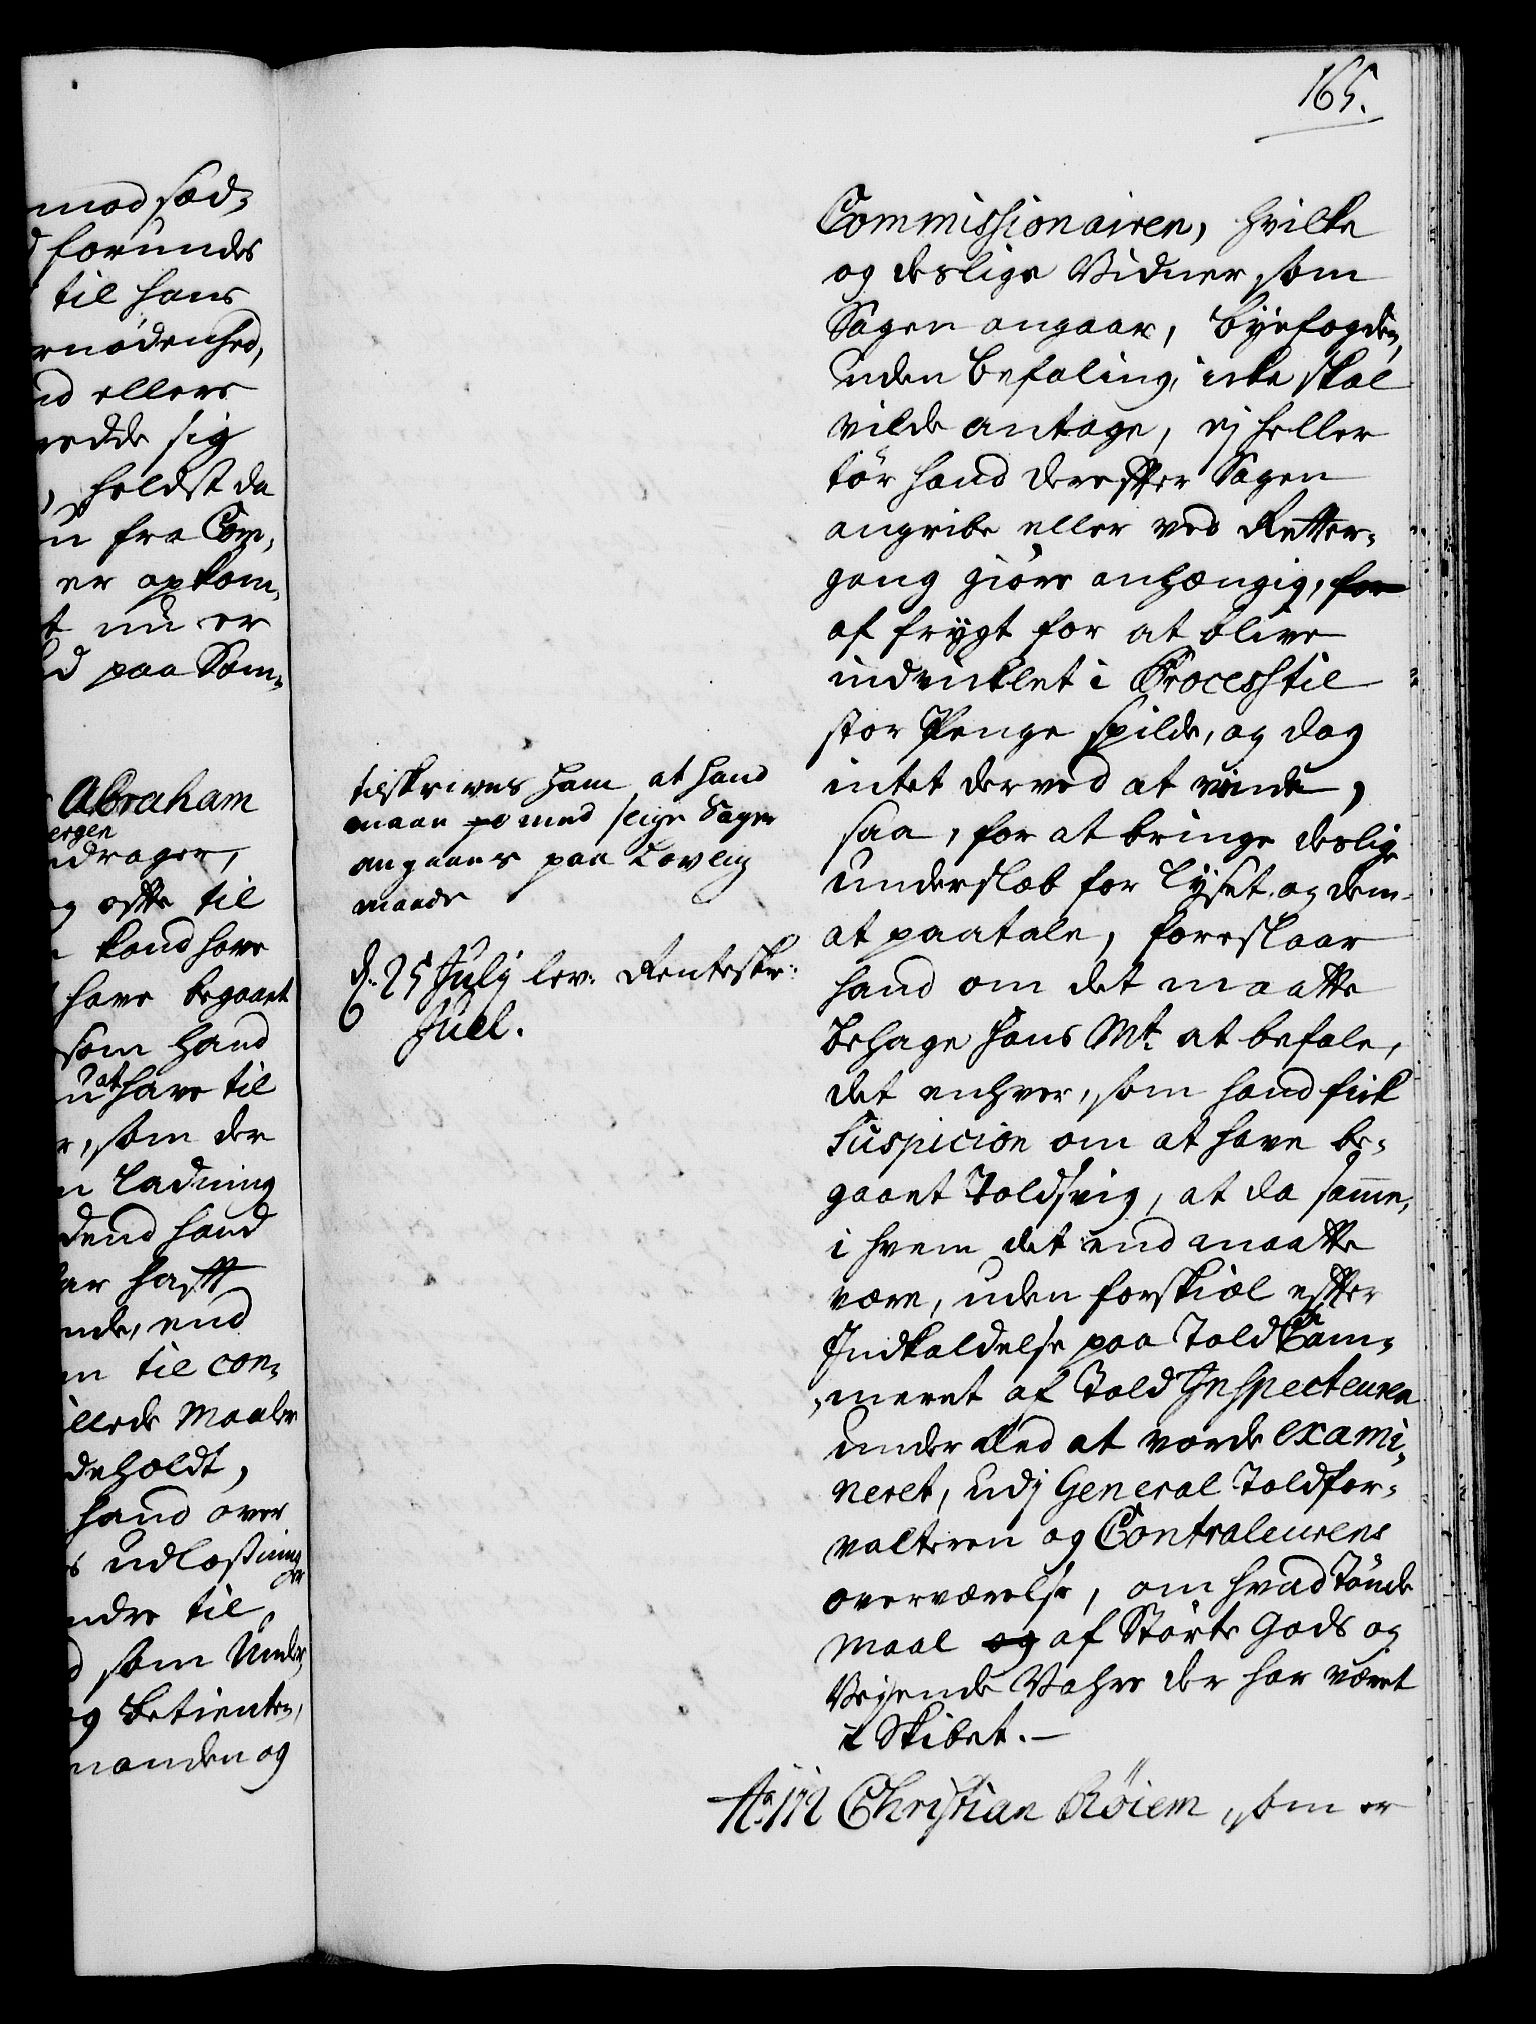 165.
mod sæd,
forundes
til hans
rnødenhed,
nd ellers
redde sig
heldst da
n fra Com,
er opkom,
t nu er
d paa Som,
Abraham
ergen
ndrager,
og ofte til
kand have
have begaaet
som hand
u at have til
r, som der
n Ladning
dend hand
har hafft
nde, end
m til con,
illede Maaler
deholdt,
hand over
s udlosning
ndre til
d som Under,
og Betienter,
manden og
tilskrives ham at hand
maae med slige Sager
angaaes paa Lovlig
maade
d: 25 July lev: Renteskr:
Juel.
Commissionairen, hvilke
og deslige Vidner, som
Sagen angaar, Byefogden,
uden befaling, icke skal
vilde antage, ej heller
tör hand dereffter Sagen
angribe eller ved Retter,
gang giöre anhængig, for
af frygt for at blive
indviklet i Process til
stor Penge spilde, og dog
intet derved at vinde,
saa, for at bringe deslige
underslæb for lyset og dem
at paatale, foreslaar
hand om det maatte
behage Hans Mt. at befale,
det enhver, som hand fick
Suspicion om at have be,
gaaet Toldsvig, at da samme,
i hvem det end maatte
være, uden forskiæl effter
Indkaldelse paa Told Cam,
meret af Told Inspecteuren
under Eed at vorde exami,
neret, udj General Toldfor,
valteren og Contraleurens
overværelse, om hvad Tönde
Maal og af Störte Gods og
Veyende Vahre der har været
i Skibet.
No. 172 Christian Röiem, som er